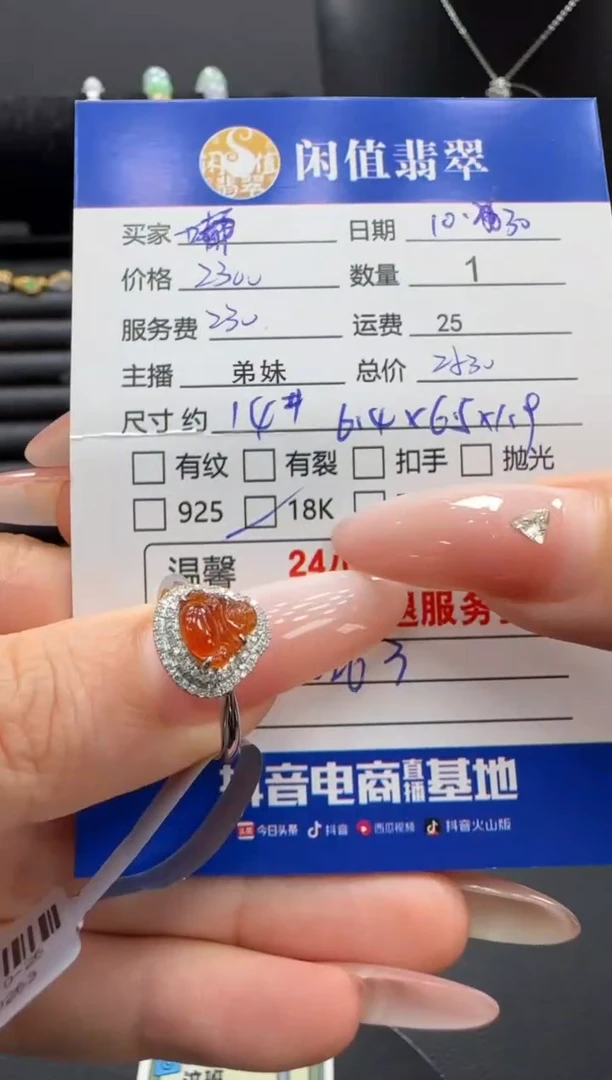 闲值翡翠
买家 日期 10.30
价格 2300 数量 1
服务费 230 运费 25
主播 弟妹 总价 2530
尺寸 约 14# 6.4×6.5×1.9
有纹 有裂 扣手 抛光
925 18K
温馨 24小
退服务
63
抖音电商直播基地
今日头条 抖音 西瓜视频 抖音火山版